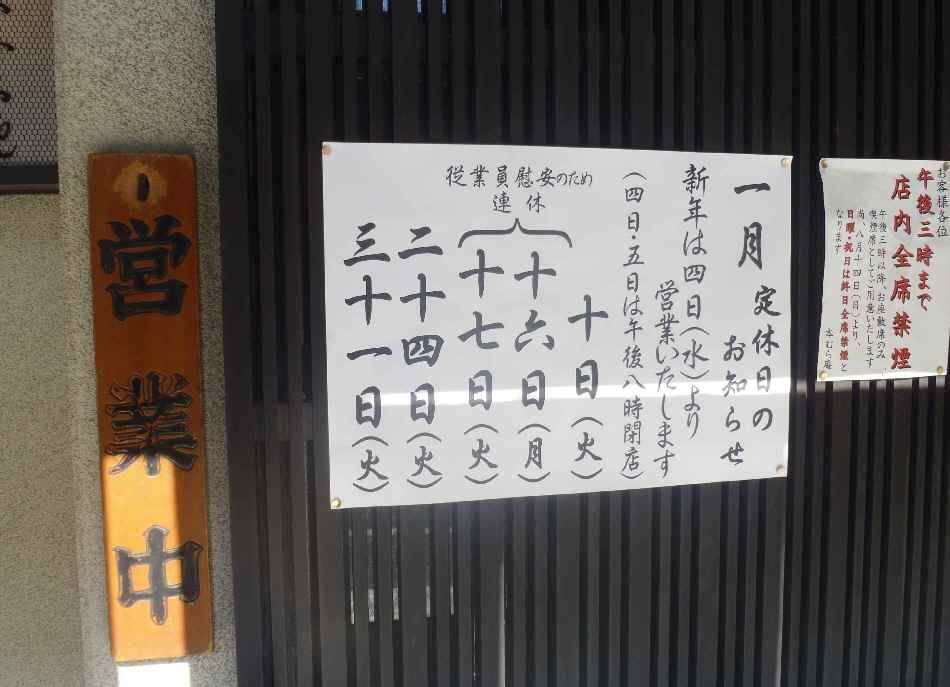 営業中
一月 定休日の
お知らせ
新年は四日(水)より
営業いたします
(四日・五日は午後八時閉店)
十日(火)
従業員慰安のため
連休
十六日(月)
十七日(火)
二十四日(火)
三十一日(火)
お客様各位
午後三時まで
店内全席禁煙
午後三時以降、お座敷席のみ
喫煙席としてご用意いたします
尚、八月十四日(日)より、
日曜・祝日は終日全席禁煙と
なります
本むら庵